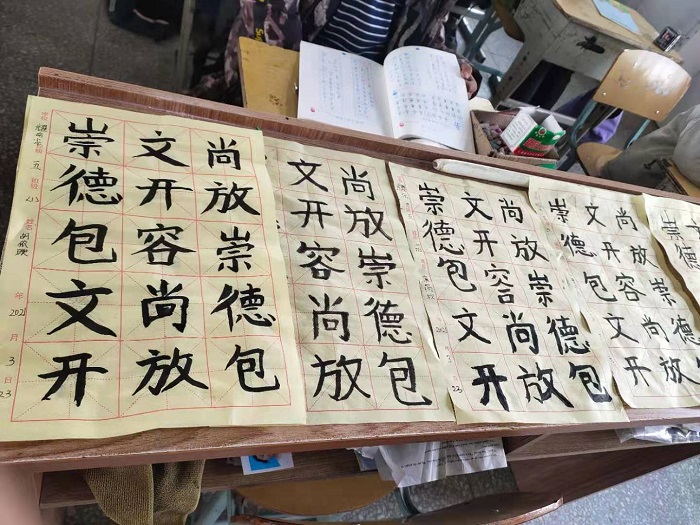 崇文尚
德开放
包容崇
文尚德
开放包
五
班级
姓名
年
202
月
3
日
23
文尚
开放
容崇
尚德
放包
崇文尚
德开放
包容崇
文尚德
开放包
3
23
崇文尚
德开放
包容崇
文尚德
开放
崇文
德
包